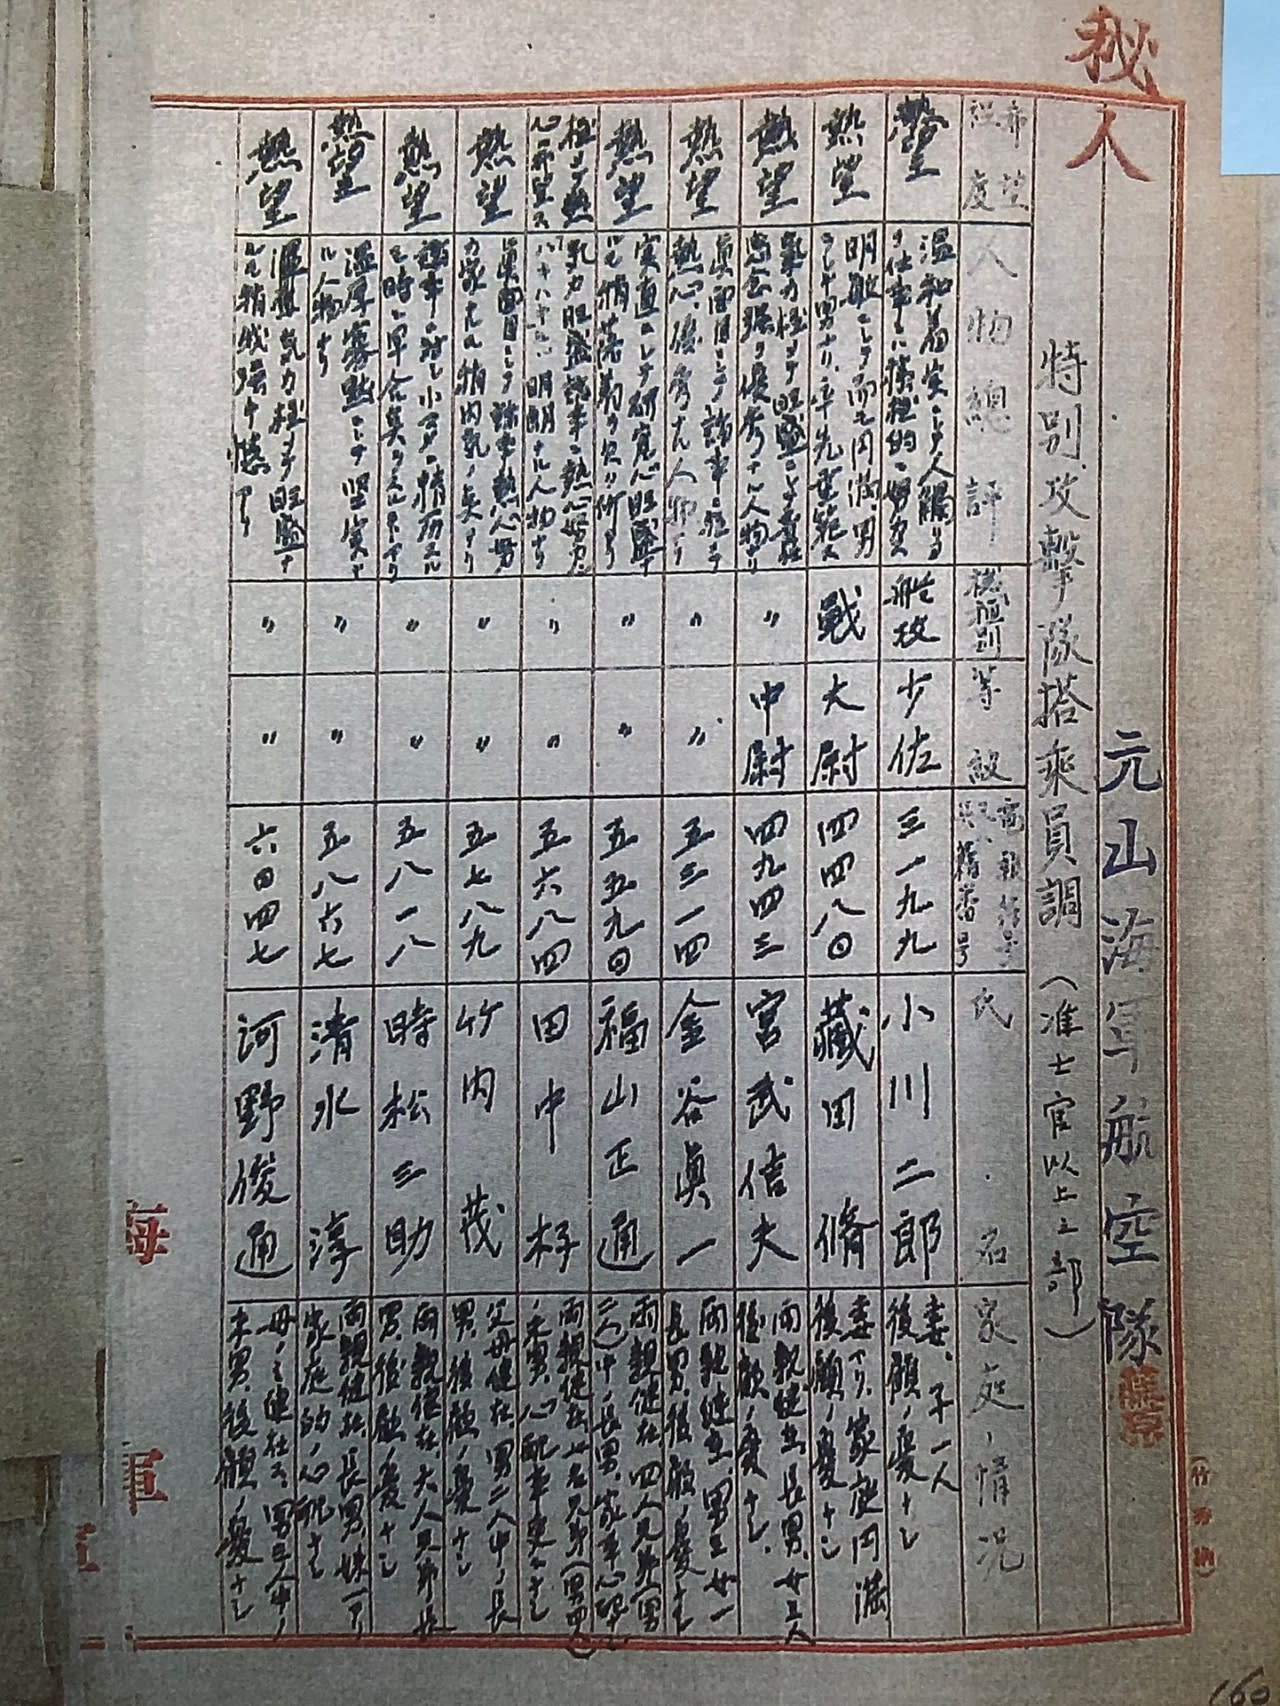 秘
人
元山海軍航空隊
特別攻撃隊搭乗員調（准士官以上之部）
希望程度
人物總評
機種別
等級
氏名
家庭ノ情況
熱望
温和着実ニシテ
艦攻
少佐
三一九九
小川二郎
妻、子一人
後顧ノ憂ナシ
熱望
明敏ニシテ而モ円満、男
ラシキ男ナリ、率先垂範ス
戦
大尉
四四八〇
藏田脩
妻アリ、家庭円満
後顧ノ憂ナシ
熱望
氣力極メテ旺盛ニシテ責任
念強ク優秀ナル人物ナリ
〃
中尉
四九四三
宮武信夫
両親健在、長男、
後顧ノ憂ナシ
熱望
眞面目ニシテ諸事ニ極メテ
熱心、優秀ナル人物ナリ
〃
〃
五三一四
金谷眞一
両親健在、男三女一
長男、後顧ノ憂ナシ
熱望
実直ニシテ研究心旺盛ナ
ルモ稍
〃
〃
五五九〇
福山正通
両親健在、四人兄弟（男
二人）中ノ長男、家事心配ナシ
極メテ熱
心ニ希望ス
氣力旺盛諸事ニ熱心努力
明朗ナル人物ナリ
〃
〃
五六八四
田中杼
両親健在
ノ末男、心配事更ニナシ
熱望
眞面目ニシテ諸事熱心努
力家ナルモ稍内氣ノ点アリ
〃
〃
五七八九
竹内茂
父母健在、男二人中ノ長
男、後顧ノ憂ナシ
熱望
諸事ニ
〃
〃
五八一八
時松三助
両親健在、六人兄弟長
男、後顧ノ憂ナシ
熱望
温厚寡黙ニシテ堅実ナ
ル人物ナリ
〃
〃
五八六七
清水淳
両親健在、長男、妹一アリ
家庭的ノ心配ナシ
熱望
氣力極メテ旺盛ナ
ルモ稍我強キ憾アリ
〃
〃
六〇四七
河野俊通
母ノミ健在、男三人中ノ
末男、後顧ノ憂ナシ
海
軍